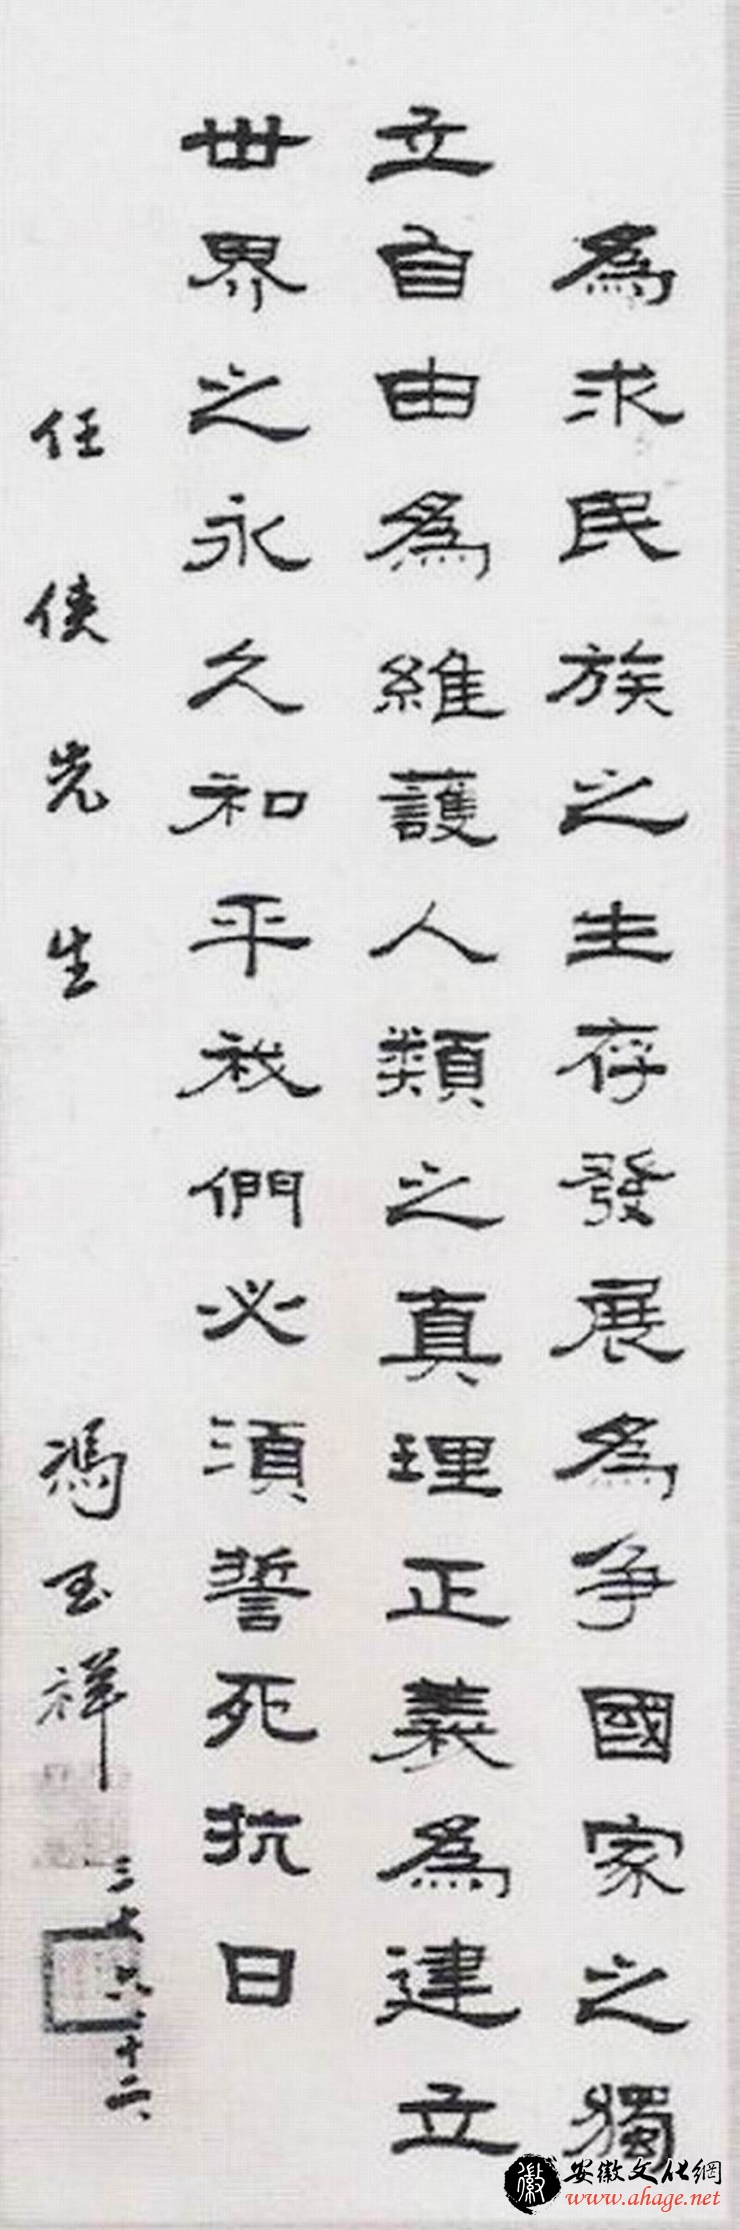 為求民族之生存發展為争國家之獨
立自由為維護人類之真理正義為建立
世界之永久和平我們必須誓死抗日
任俠先生
馮玉祥
三七六、十二、
安徽文化網
www.ahage.net